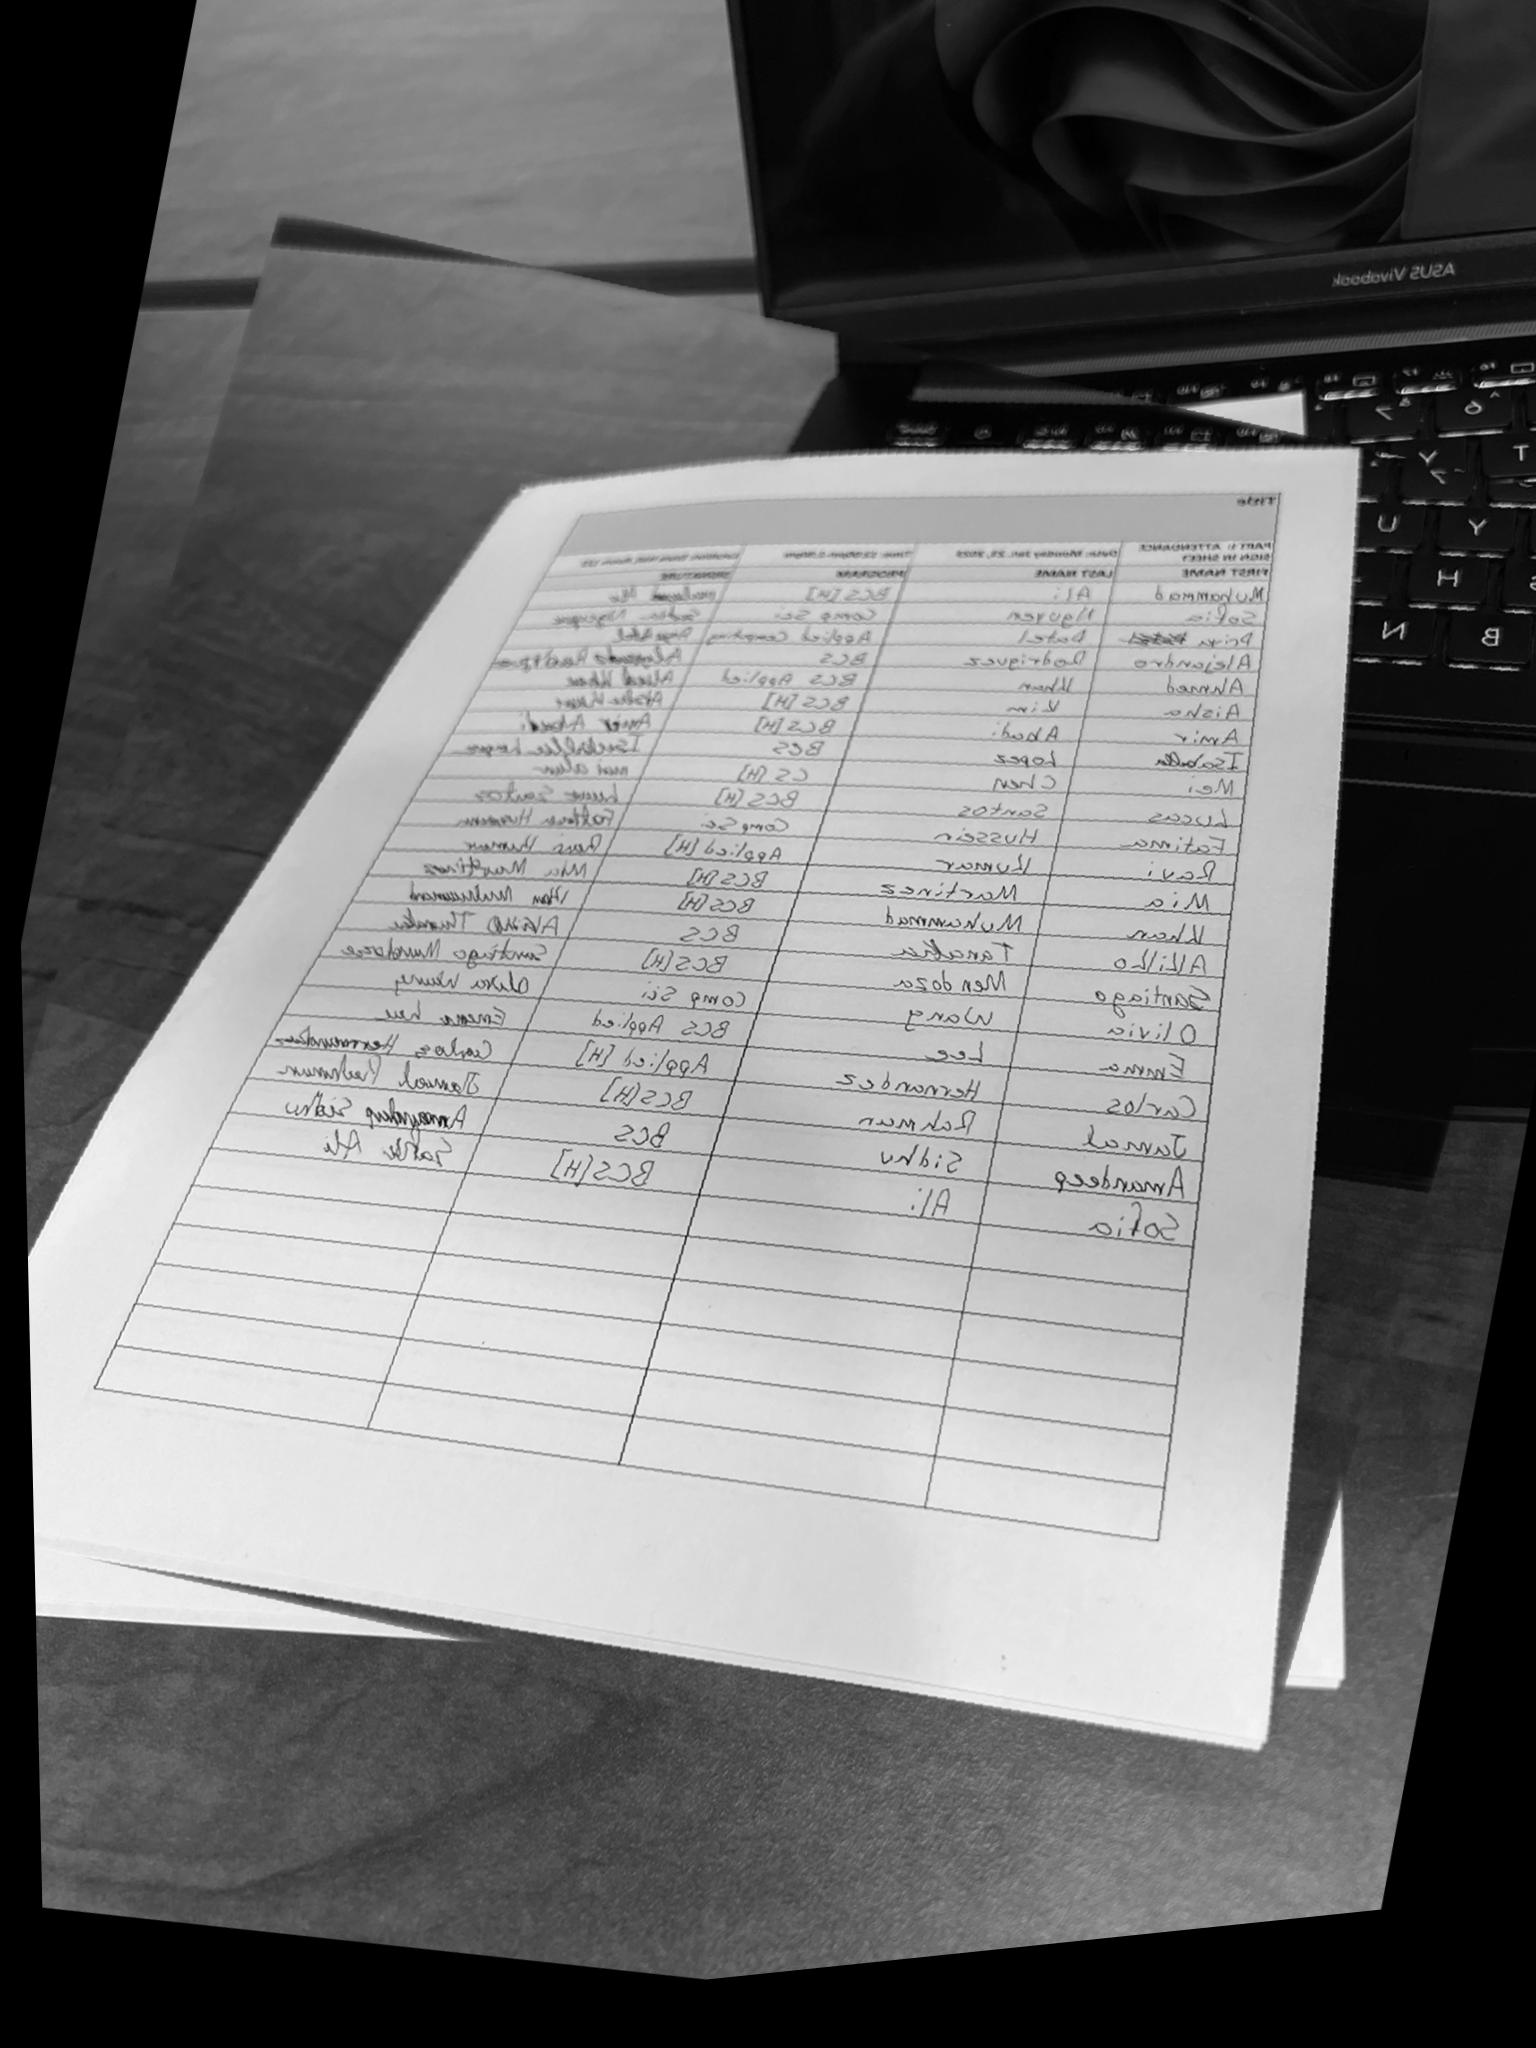 ASUS Vivobook
Title
PART 1: ATTENDANCE SIGN IN SHEET Date: Monday Jan. 23, 2023 Time: 12:00pm-2:00pm
FIRST NAME LAST NAME PROGRAM SIGNATURE
Muhammad Ali BCS [H] Muhammad Ali
Sofia Nguyen Comp Sci Sofia Nguyen
Priya Patel Applied Computing Priya Patel
Alejandro Rodriguez BCS Alejandro Rodriguez
Ahmed Khan BCS Applied Ahmed Khan
Aisha Kim BCS [H] Aisha Kim
Amir Abadi BCS [H] Amir Abadi
Isabella Lopez BCS Isabella Lopez
Mei Chen CS [H] mei chen
Lucas Santos BCS [H] Lucas Santos
Fatima Hussein Comp Sci Fatima Hussein
Ravi Kumar Applied [H] Ravi Kumar
Mia Martinez BCS [H] Mia Martinez
Khan Muhammad BCS [H] Khan Muhammad
Tanaka BCS
Santiago Mendoza BCS [H] Santiago Mendoza
Olivia Wang Comp Sci Olivia Wang
Emma Lee BCS Applied Emma Lee
Carlos Hernandez Applied [H] Carlos Hernandez
Jamal Rahman BCS [H] Jamal Rahman
Amandeep Sidhu BCS Amandeep Sidhu
Sofia Ali BCS [H] Sofia Ali
6
7
T
Y
U
Y
H
B
N